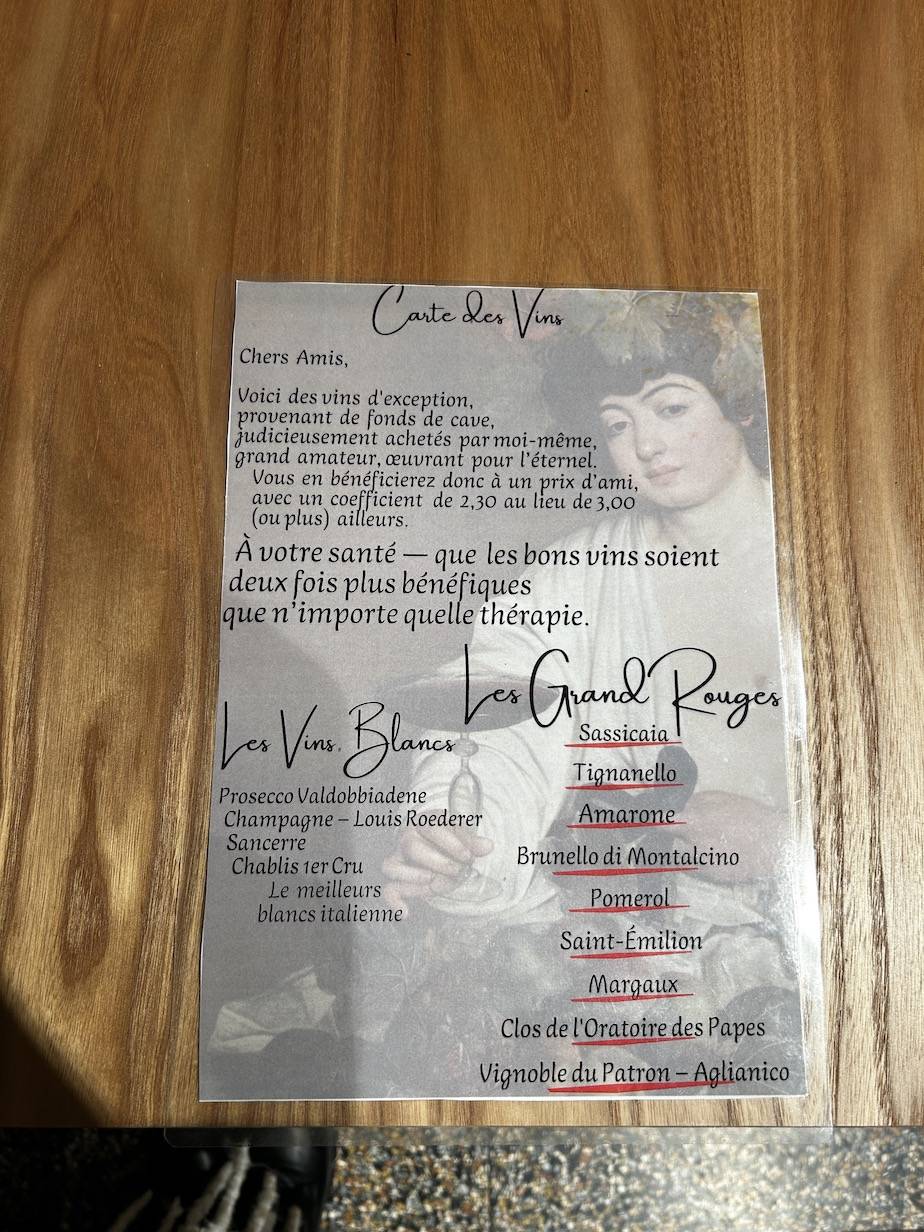 Carte des Vins
Chers Amis,
Voici des vins d'exception,
provenant de fonds de cave,
judicieusement achetés par moi-même,
grand amateur, œuvrant pour l'éternel.
Vous en bénéficierez donc à un prix d'ami,
avec un coefficient de 2,30 au lieu de 3,00
(ou plus) ailleurs.
À votre santé — que les bons vins soient
deux fois plus bénéfiques
que n'importe quelle thérapie.
Les Vins Blancs
Prosecco Valdobbiadene
Champagne – Louis Roederer
Sancerre
Chablis 1er Cru
Le meilleurs
blancs italienne
Les Grand Rouges
Sassicaia
Tignanello
Amarone
Brunello di Montalcino
Pomerol
Saint-Émilion
Margaux
Clos de l'Oratoire des Papes
Vignoble du Patron – Aglianico